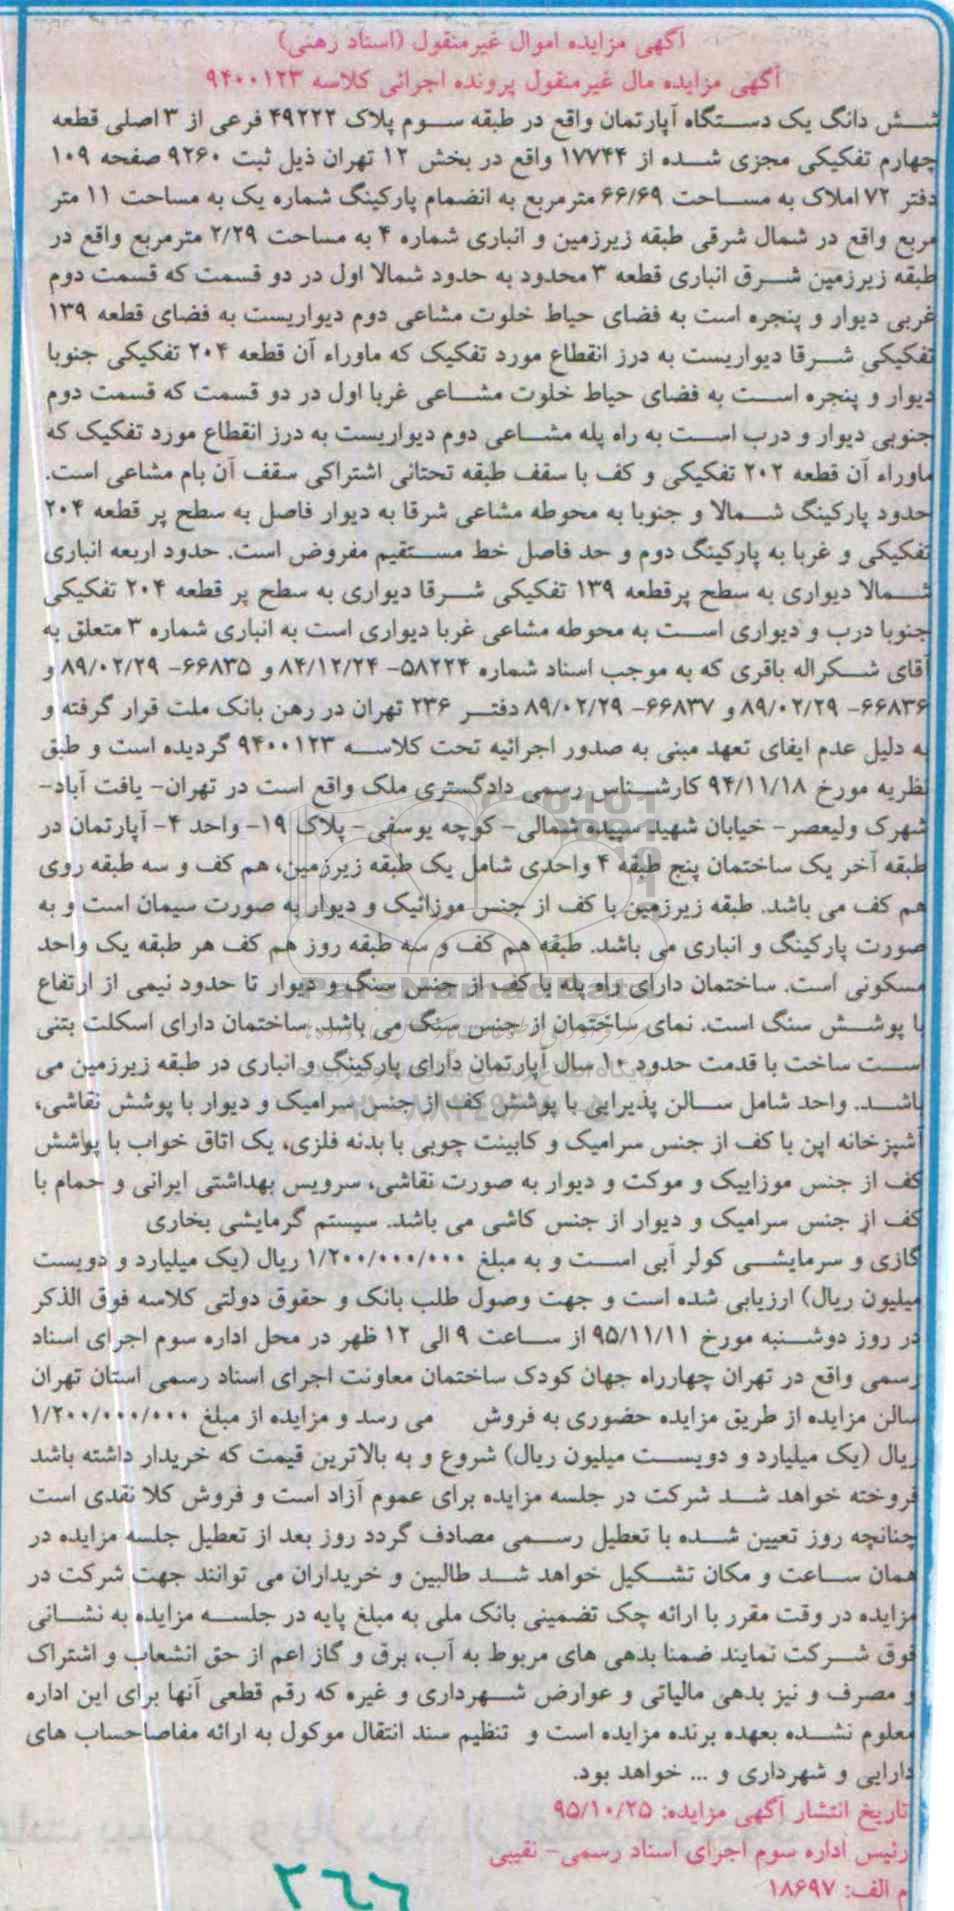 آگهی مزایده اموال غیرمنقول (اسناد رهنی)
آگهی مزایده مال غیرمنقول پرونده اجرائی کلاسه ۹۴۰۰۱۲۳
شش دانگ یک دستگاه آپارتمان واقع در طبقه سوم پلاک ۴۹۲۲۲ فرعی از ۳ اصلی قطعه
چهارم تفکیکی مجزی شده از ۱۷۷۴۴ واقع در بخش ۱۲ تهران ذیل ثبت ۹۲۶۰ صفحه ۱۰۹
دفتر ۷۲ املاک به مساحت ۶۶/۶۹ مترمربع به انضمام پارکینگ شماره یک به مساحت ۱۱ متر
مربع واقع در شمال شرقی طبقه زیرزمین و انباری شماره ۴ به مساحت ۲/۲۹ مترمربع واقع در
طبقه زیرزمین شرق انباری قطعه ۳ محدود به حدود شمالا اول در دو قسمت که قسمت دوم
غربی دیوار و پنجره است به فضای حیاط خلوت مشاعی دوم دیواریست به فضای قطعه ۱۳۹
تفکیکی شرقا دیواریست به درز انقطاع مورد تفکیک که ماوراء آن قطعه ۲۰۴ تفکیکی جنوبا
دیوار و پنجره است به فضای حیاط خلوت مشاعی غربا اول در دو قسمت که قسمت دوم
جنوبی دیوار و درب است به راه پله مشاعی دوم دیواریست به درز انقطاع مورد تفکیک که
ماوراء آن قطعه ۲۰۲ تفکیکی و کف با سقف طبقه تحتانی اشتراکی سقف آن بام مشاعی است.
حدود پارکینگ شمالا و جنوبا به محوطه مشاعی شرقا به دیوار فاصل به سطح پر قطعه ۲۰۴
تفکیکی و غربا به پارکینگ دوم و حد فاصل خط مستقیم مفروض است. حدود اربعه انباری
شمالا دیواری به سطح پرقطعه ۱۳۹ تفکیکی شرقا دیواری به سطح پر قطعه ۲۰۴ تفکیکی
جنوبا درب و دیواری است به محوطه مشاعی غربا دیواری است به انباری شماره ۳ متعلق به
آقای شکراله باقری که به موجب اسناد شماره ۵۸۲۲۴- ۸۴/۱۲/۲۴ و ۶۶۸۳۵- ۸۹/۰۲/۲۹ و
۶۶۸۳۶- ۸۹/۰۲/۲۹ و ۶۶۸۳۷- ۸۹/۰۲/۲۹ دفتر ۲۳۶ تهران در رهن بانک ملت قرار گرفته و
به دلیل عدم ایفای تعهد مبنی به صدور اجرائیه تحت کلاسه ۹۴۰۰۱۲۳ گردیده است و طبق
نظریه مورخ ۹۴/۱۱/۱۸ کارشناس رسمی دادگستری ملک واقع است در تهران- یافت آباد-
شهرک ولیعصر- خیابان شهید سپیده شمالی- کوچه یوسفی- پلاک ۱۹- واحد ۴- آپارتمان در
طبقه آخر یک ساختمان پنج طبقه ۴ واحدی شامل یک طبقه زیرزمین، هم کف و سه طبقه روی
هم کف می باشد. طبقه زیرزمین با کف از جنس موزائیک و دیوار به صورت سیمان است و به
صورت پارکینگ و انباری می باشد. طبقه هم کف و سه طبقه روز هم کف هر طبقه یک واحد
مسکونی است. ساختمان دارای راه پله با کف از جنس سنگ و دیوار تا حدود نیمی از ارتفاع
با پوشش سنگ است. نمای ساختمان از جنس سنگ می باشد. ساختمان دارای اسکلت بتنی
است ساخت با قدمت حدود ۱۰ سال آپارتمان دارای پارکینگ و انباری در طبقه زیرزمین می
باشد. واحد شامل سالن پذیرایی با پوشش کف از جنس سرامیک و دیوار با پوشش نقاشی،
آشپزخانه اپن با کف از جنس سرامیک و کابینت چوبی با بدنه فلزی، یک اتاق خواب با پواشش
کف از جنس موزاییک و موکت و دیوار به صورت نقاشی، سرویس بهداشتی ایرانی و حمام با
کف از جنس سرامیک و دیوار از جنس کاشی می باشد. سیستم گرمایشی بخاری
گازی و سرمایشی کولر آبی است و به مبلغ ۱/۲۰۰/۰۰۰/۰۰۰ ریال (یک میلیارد و دویست
میلیون ریال) ارزیابی شده است و جهت وصول طلب بانک و حقوق دولتی کلاسه فوق الذکر
در روز دوشنبه مورخ ۹۵/۱۱/۱۱ از ساعت ۹ الی ۱۲ ظهر در محل اداره سوم اجرای اسناد
رسمی واقع در تهران چهارراه جهان کودک ساختمان معاونت اجرای اسناد رسمی استان تهران
سالن مزایده از طریق مزایده حضوری به فروش می رسد و مزایده از مبلغ ۱/۲۰۰/۰۰۰/۰۰۰
ریال (یک میلیارد و دویست میلیون ریال) شروع و به بالاترین قیمت که خریدار داشته باشد
فروخته خواهد شد شرکت در جلسه مزایده برای عموم آزاد است و فروش کلا نقدی است
چنانچه روز تعیین شده با تعطیل رسمی مصادف گردد روز بعد از تعطیل جلسه مزایده در
همان ساعت و مکان تشکیل خواهد شد طالبین و خریداران می توانند جهت شرکت در
مزایده در وقت مقرر با ارائه چک تضمینی بانک ملی به مبلغ پایه در جلسه مزایده به نشانی
فوق شرکت نمایند ضمنا بدهی های مربوط به آب، برق و گاز اعم از حق انشعاب و اشتراک
و مصرف و نیز بدهی مالیاتی و عوارض شهرداری و غیره که رقم قطعی آنها برای این اداره
معلوم نشده بعهده برنده مزایده است و تنظیم سند انتقال موکول به ارائه مفاصاحساب های
دارایی و شهرداری و ... خواهد بود.
تاریخ انتشار آگهی مزایده: ۹۵/۱۰/۲۵
رئیس اداره سوم اجرای اسناد رسمی- نقیبی
م الف: ۱۸۶۹۷
۳۶۶